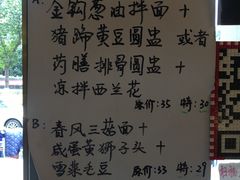 A:
金钩葱油拌面 +
猪蹄黄豆圆盅 或者
药膳排骨圆盅 +
凉拌西兰花
原价:35 特:30
B:
春风三菇面 +
咸蛋黄狮子头 +
雪菜毛豆
原价:33 特:29